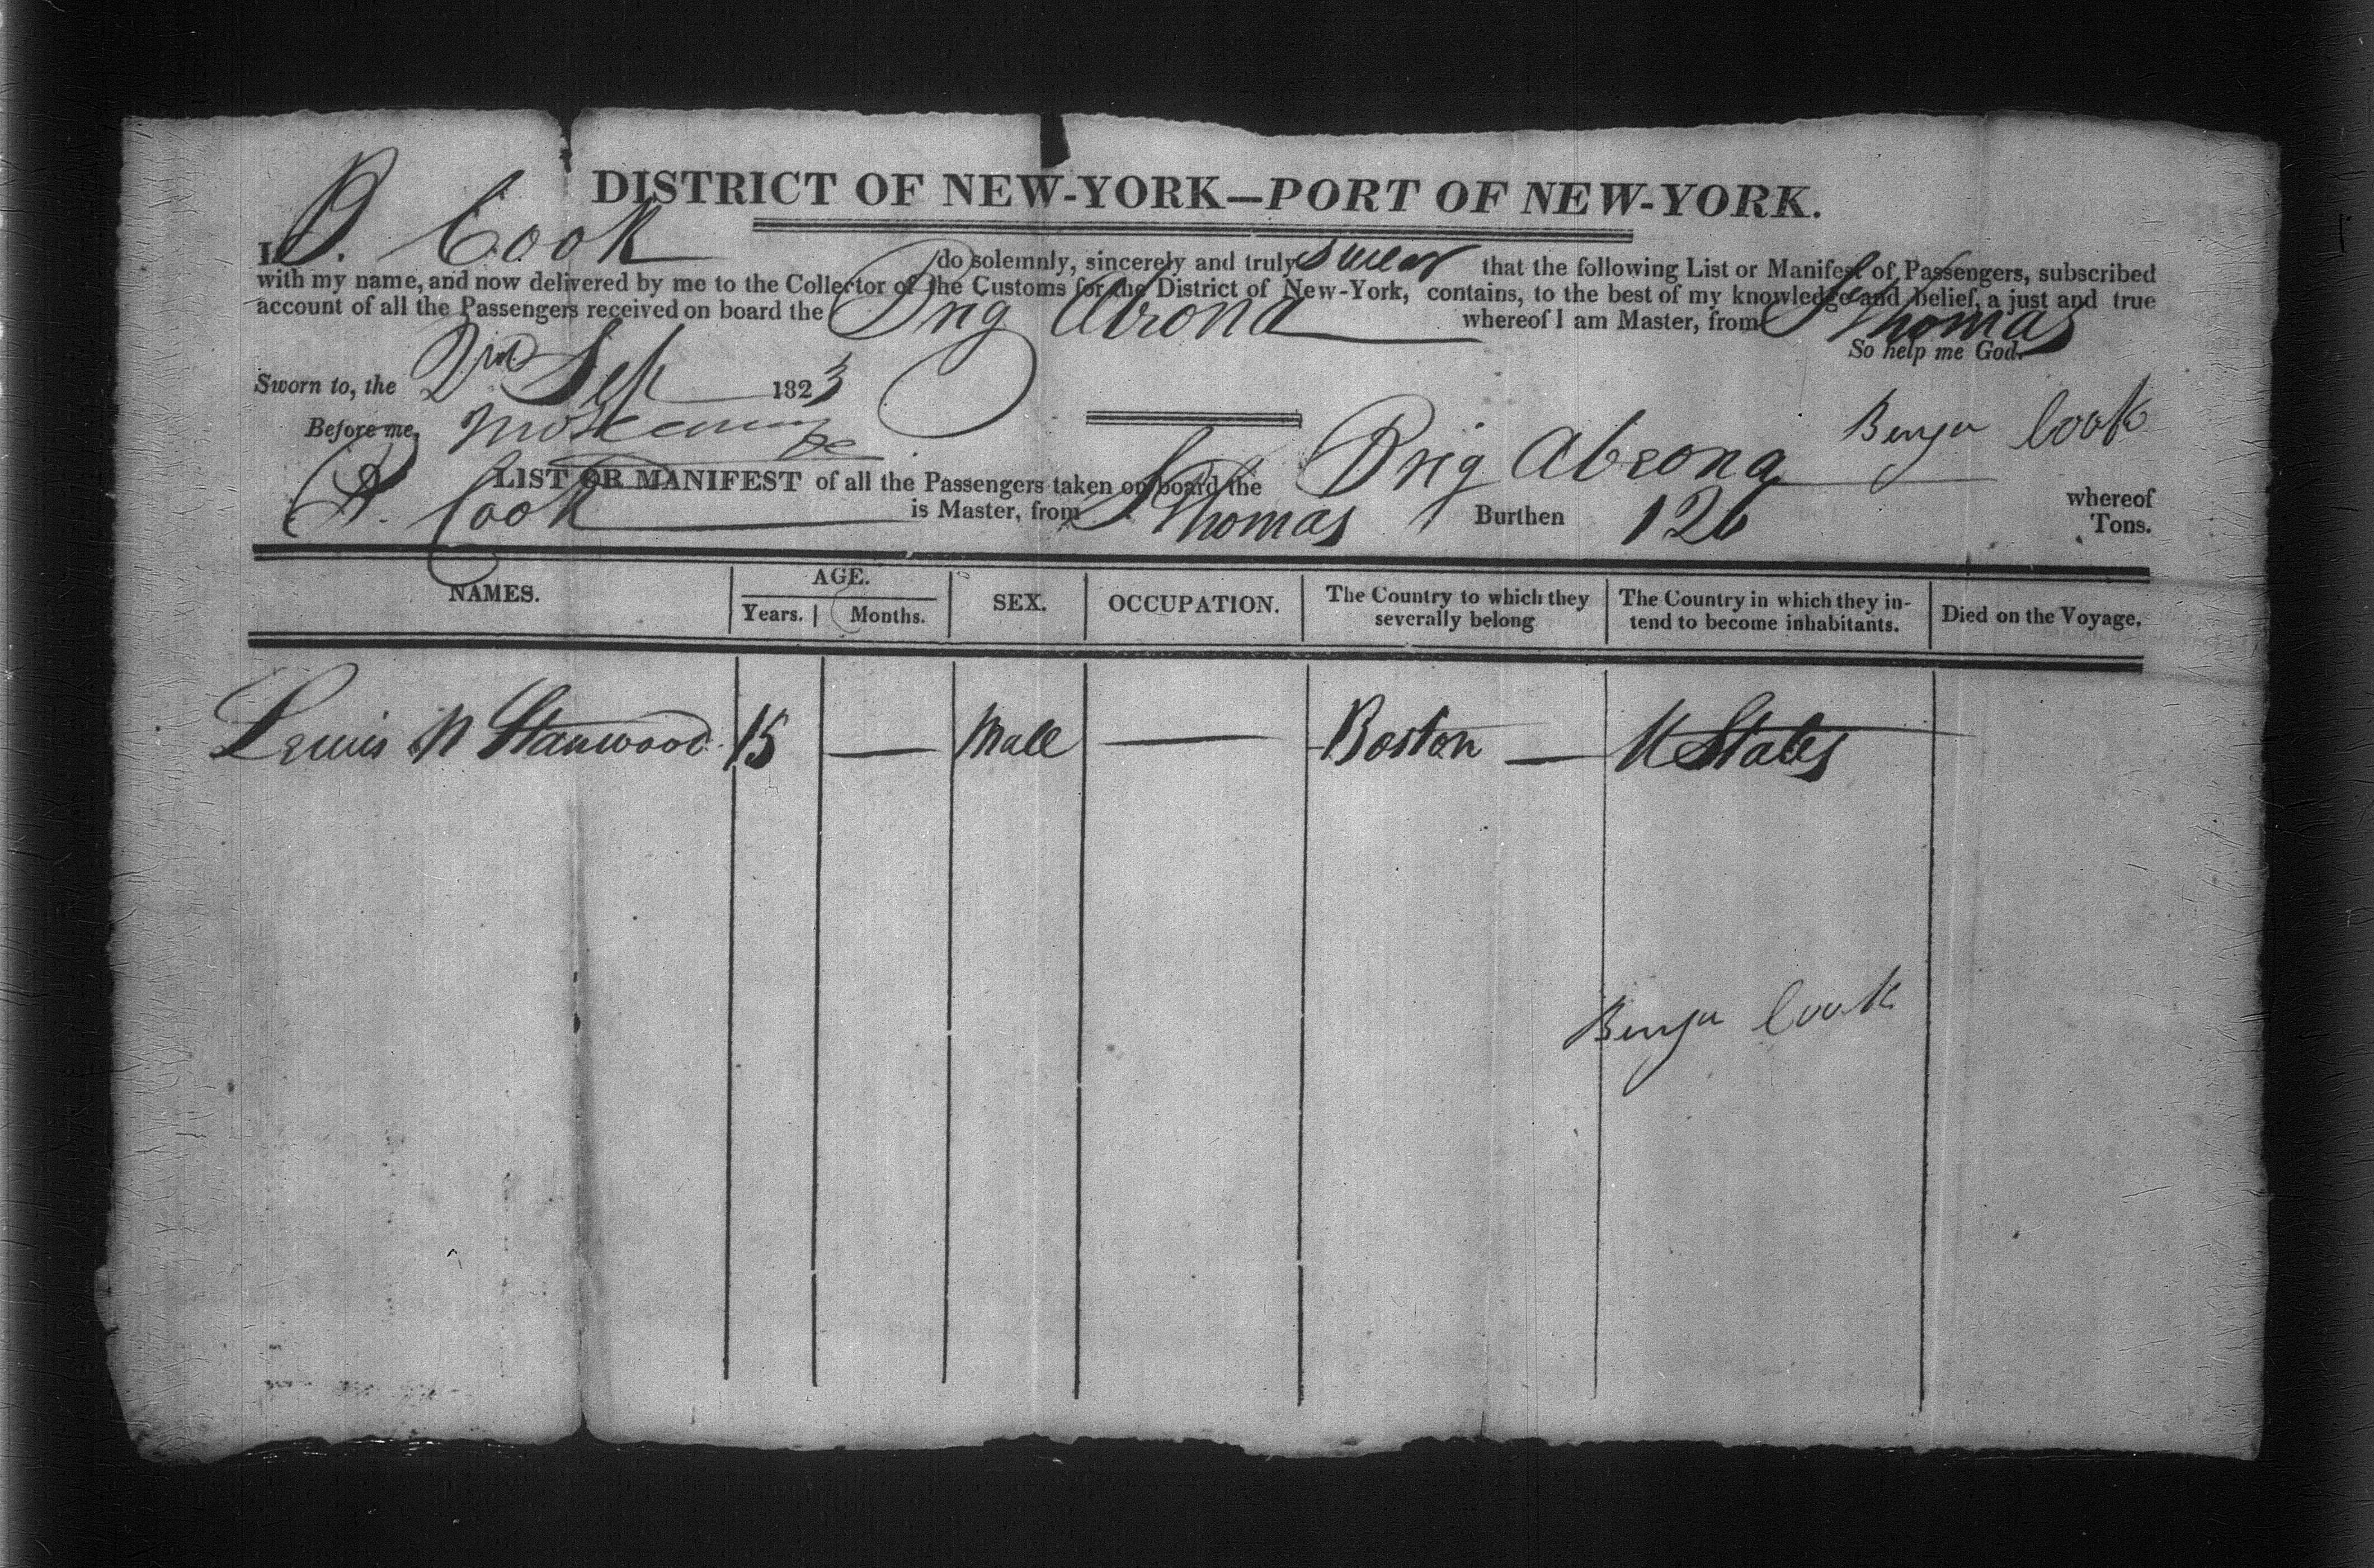 DISTRICT OF NEW-YORK—PORT OF NEW-YORK.
I B. Cook do solemnly, sincerely and truly swear that the following List or Manifest of Passengers, subscribed
with my name, and now delivered by me to the Collector of the Customs for the District of New-York, contains, to the best of my knowledge and belief, a just and true
account of all the Passengers received on board the Brig Abrona whereof I am Master, from St Thomas
So help me God.
Sworn to, the 2nd Sep 1823
Before me,
Benja Cook
LIST OR MANIFEST of all the Passengers taken on board the Brig Abrona whereof
B. Cook is Master, from St Thomas Burthen 126 Tons.
NAMES. AGE. Years. Months. SEX. OCCUPATION. The Country to which they severally belong The Country in which they intend to become inhabitants. Died on the Voyage.
Lewis N Stanwood 15 — Male — Boston — U States
Benja Cook